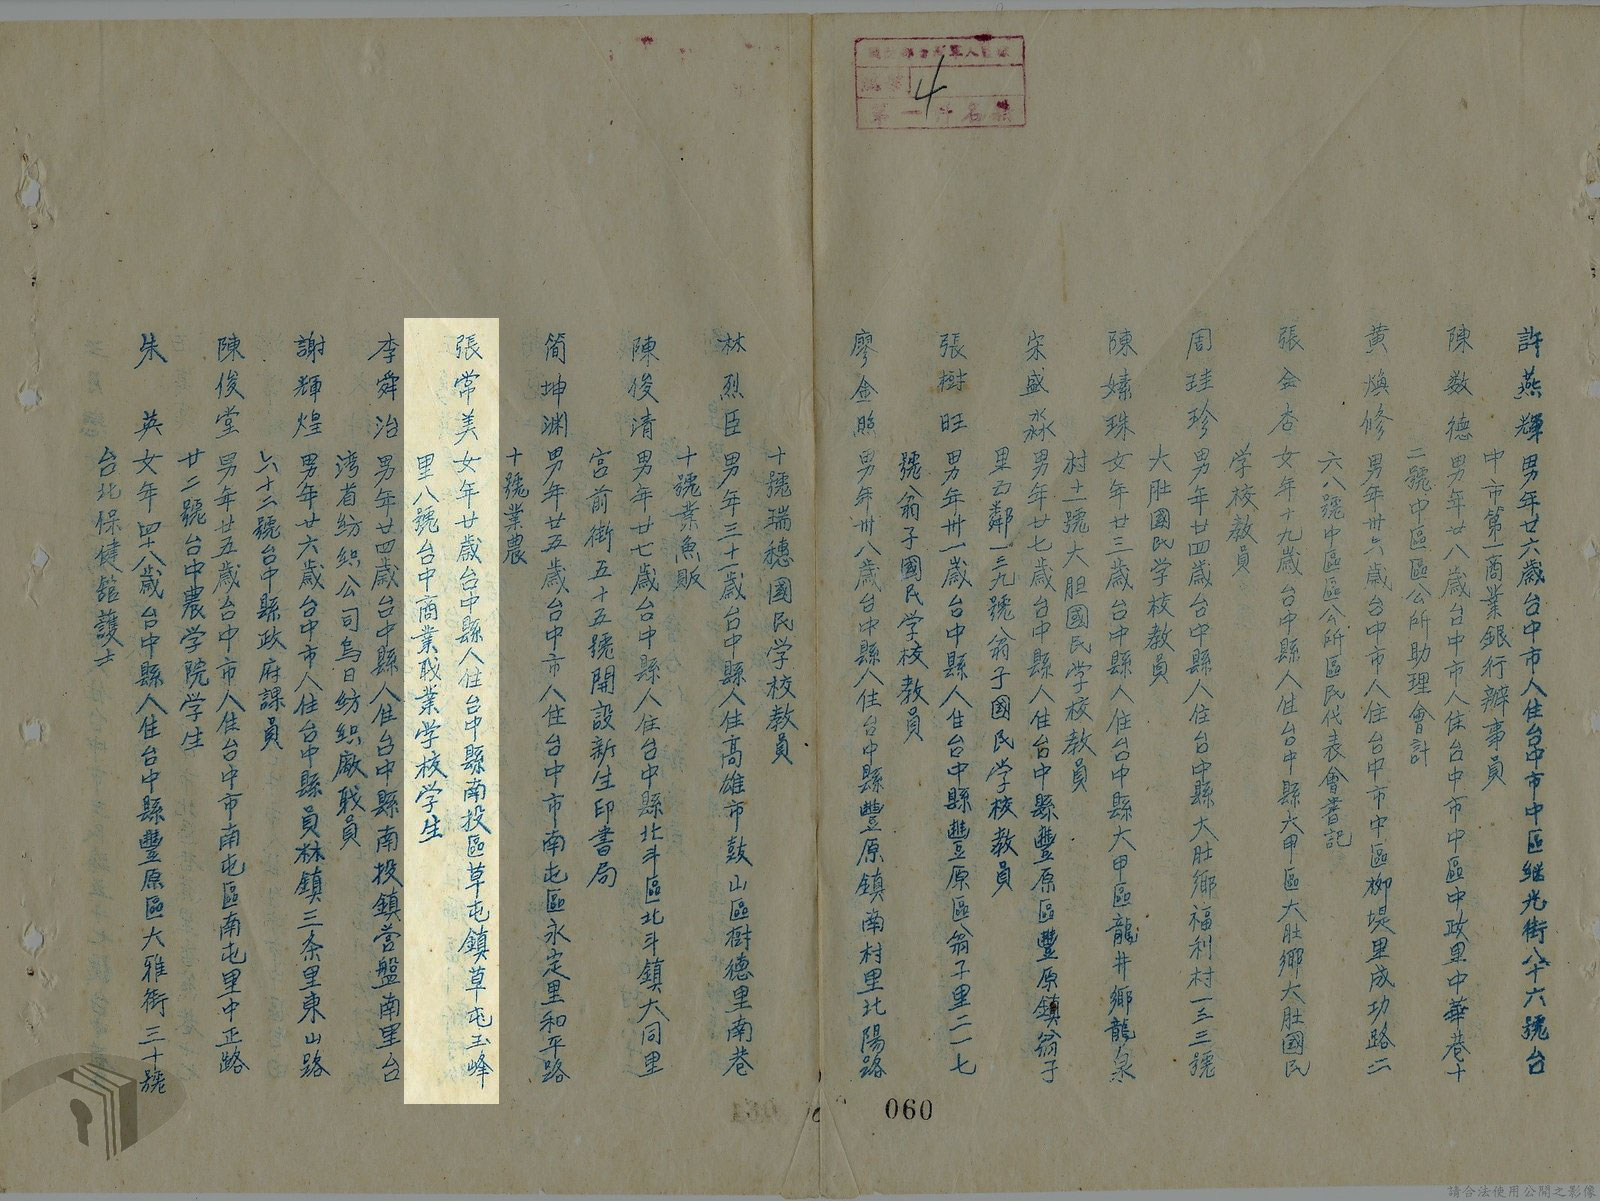 4
許燕輝男年廿六歲台中市人住台中市中區继光街八十六號台
中市第一商業銀行辦事員
陳数德男年廿八歲台中市人住台中市中區中政里中華巷十
二號中區區公所助理會計
黃煥修男年卅六歲台中市人住台中市中區柳堤里成功路二
六八號中區區公所區民代表會書記
張金杏女年十九歲台中縣人住台中縣大甲區大肚鄉大肚國民
学校教員
周珪珍男年廿四歲台中縣人住台中縣大肚鄉福利村一三三號
大肚國民学校教員
陳嫊珠女年廿三歲台中縣人住台中縣大甲區龍井鄉龍泉
村十一號大胆國民学校教員
宋盛淼男年廿七歲台中縣人住台中縣豐原區豐原鎮翁子
里五鄰一三九號翁子國民学校教員
張樹旺男年卅一歲台中縣人住台中縣豐原區翁子里二一七
號翁子國民学校教員
廖金照男年卅八歲台中縣人住台中縣豐原鎮南村里北陽路
十號瑞穗國民学校教員
林烈臣男年三十一歲台中縣人住高雄市鼓山區樹德里南巷
十號業魚販
陳俊清男年廿七歲台中縣人住台中縣北斗區北斗鎮大同里
宮前街五十五號開設新生印書局
簡坤渊男年廿五歲台中市人住台中市南屯區永定里和平路
十號業農
張常美女年廿歲台中縣人住台中縣南投區草屯鎮草屯玉峰
里八號台中商業职業学校学生
李舜治男年廿四歲台中縣人住台中縣南投鎮营盤南里台
湾省紡织公司烏日紡織廠职員
謝輝煌男年廿六歲台中市人住台中縣員林鎮三条里東山路
六十二號台中縣政府課員
陳俊堂男年廿五歲台中市人住台中市南屯區南屯里中正路
廿二號台中農学院学生
朱英女年四十八歲台中縣人住台中縣豐原區大雅街三十號
台北保健舘護士
060
請合法使用公開之影像